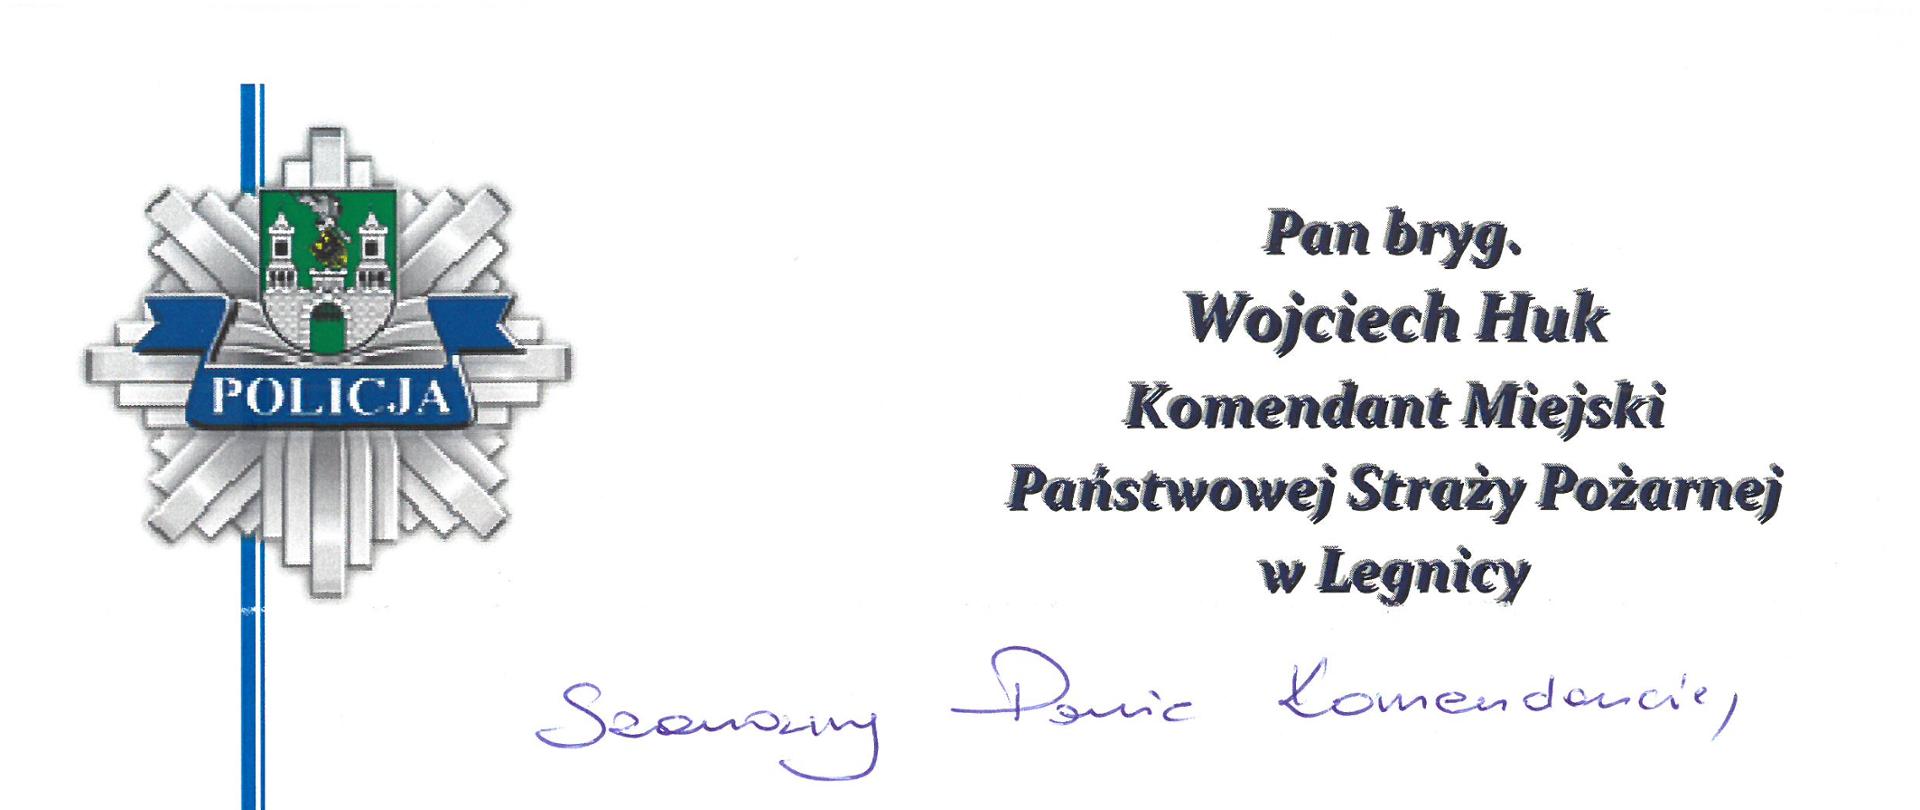 POLICJA
Pan bryg.
Wojciech Huk
Komendant Miejski
Państwowej Straży Pożarnej
w Legnicy
Szanowny Panie Komendancie,